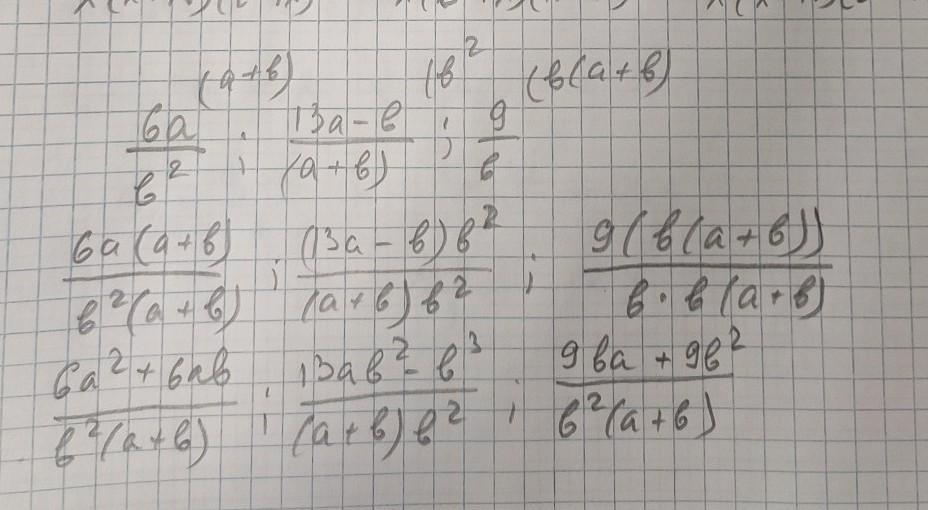 (a+b) (b² (b(a+b)
6a/b² ; 13a-b/(a+b) ; 9/b
6a(a+b)/b²(a+b) ; (13a-b)b²/(a+b)b² ; 9(b(a+b))/b·b(a+b)
6a²+6ab/b²(a+b) ; 13ab²-b³/(a+b)b² ; 9ba+9b²/b²(a+b)